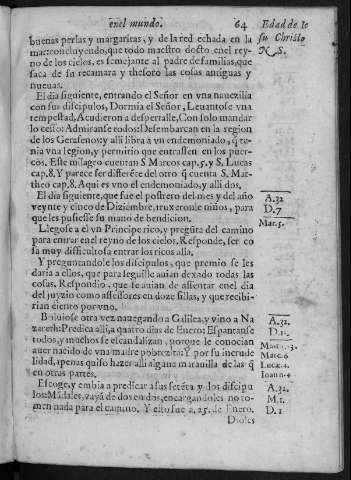 enel mundo. 64
Edad de
su Christo
N. S.
buenas perlas y margaritas, y de la red echada en la
mar: concluyendo, que todo maestro docto enel rey-
no de los cielos, es semejante al padre de familias, que
saca de su recamara y thesoro las cosas antiguas y
nueuas.
El dia siguiente, entrando el Señor en vna nauezilla
con sus discipulos, Dormia el Señor, Leuantose vna
tempestad, Acudieron a despertalle, Con solo mandar
lo cesso: Admiranse todos: Desembarcan en la region
de los Gerasenos: y alli libra a vn endemoniado, q̃ te-
nia vna legion, y permitio que entrassen en los puer-
cos. Este milagro cuentan S Marcos cap. 5. y S. Lucas
cap. 8. Y parece ser differẽte del otro q̃ cuenta S. Mat-
theo cap. 8. Aqui es vno el endemoniado, y alli dos.
El dia siguiente, que fue el postrero del mes y del año
veynte y cinco de Diziembre, truxeronle niños, para
que les pusiesse su mano de bendicion.
A. 32
D. 7
Mat. 5.
Llegose a el vn Principe rico, y pregũta del camino
para entrar enel reyno de los cielos. Responde, ser co
sa muy difficultosa entrar los ricos alla.
Y preguntandole los discipulos, que premio se les
daria a ellos, que para seguille auian dexado todas las
cosas. Respondio, que se auian de assentar enel dia
del juyzio como assessores en doze sillas, y que recibi-
rian ciento por vno.
Boluiose otra vez nauegando a Galilea, y vino a Na
zareth: Predica alli, a quatro dias de Enero: Espantanse
todos, y muchos se escandalizan, porque le conocian
auer nacido de vna madre pobrezita: Y por su incredu
lidad, apenas quiso hazer alli alguna marauilla de las q̃
en otras partes.
A. 32.
D. 11.
Marc. 6
Luc. 4.
Ioann. 4
Escoge, y embia a predicar a sus setẽta y dos discipu
los: Mãdales, vayã de dos en dos, encargandoles no to-
men nada para el camino. Y esto fue a. 25. de Enero.
A. 32.
M. 1.
D. 1